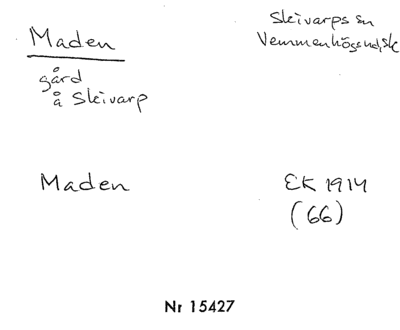 Maden
Skivarps sn
Vemmenhögs hd, sk
gård
å Skivarp
Maden
EK 1914
(66)
Nr 15427